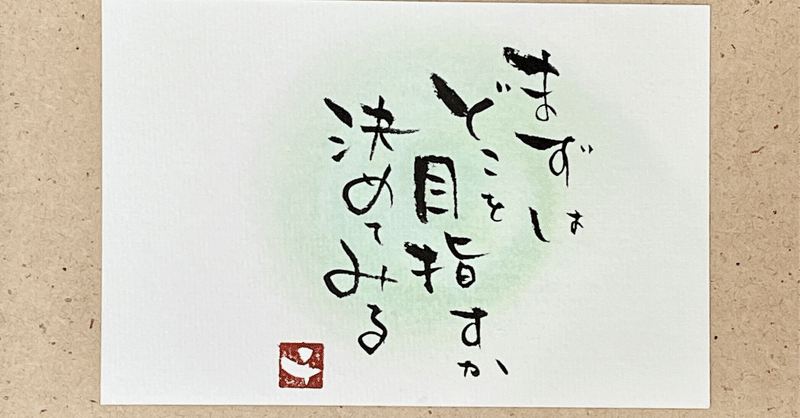 まずは
どこを
目指すか
決めてみる